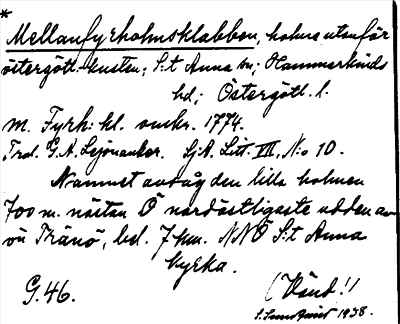 *
Mellanfyrholmsklabben, holme utanför
östergötl. kusten; S:t Anna sn; Hammarkinds
hd; Östergötl. l.
m. Fyrh: kl. omkr. 1774.
Trol. G.A. Lejonanker. SjA. Litt. III, N:o 10.
Namnet avsåg den lilla holmen
700 m. nästan Ö nordöstligaste udden av
ön Tränö, bel. 7 km. NNÖ S:t Anna
kyrka.
G. 46.
(Vänd!)
1938.